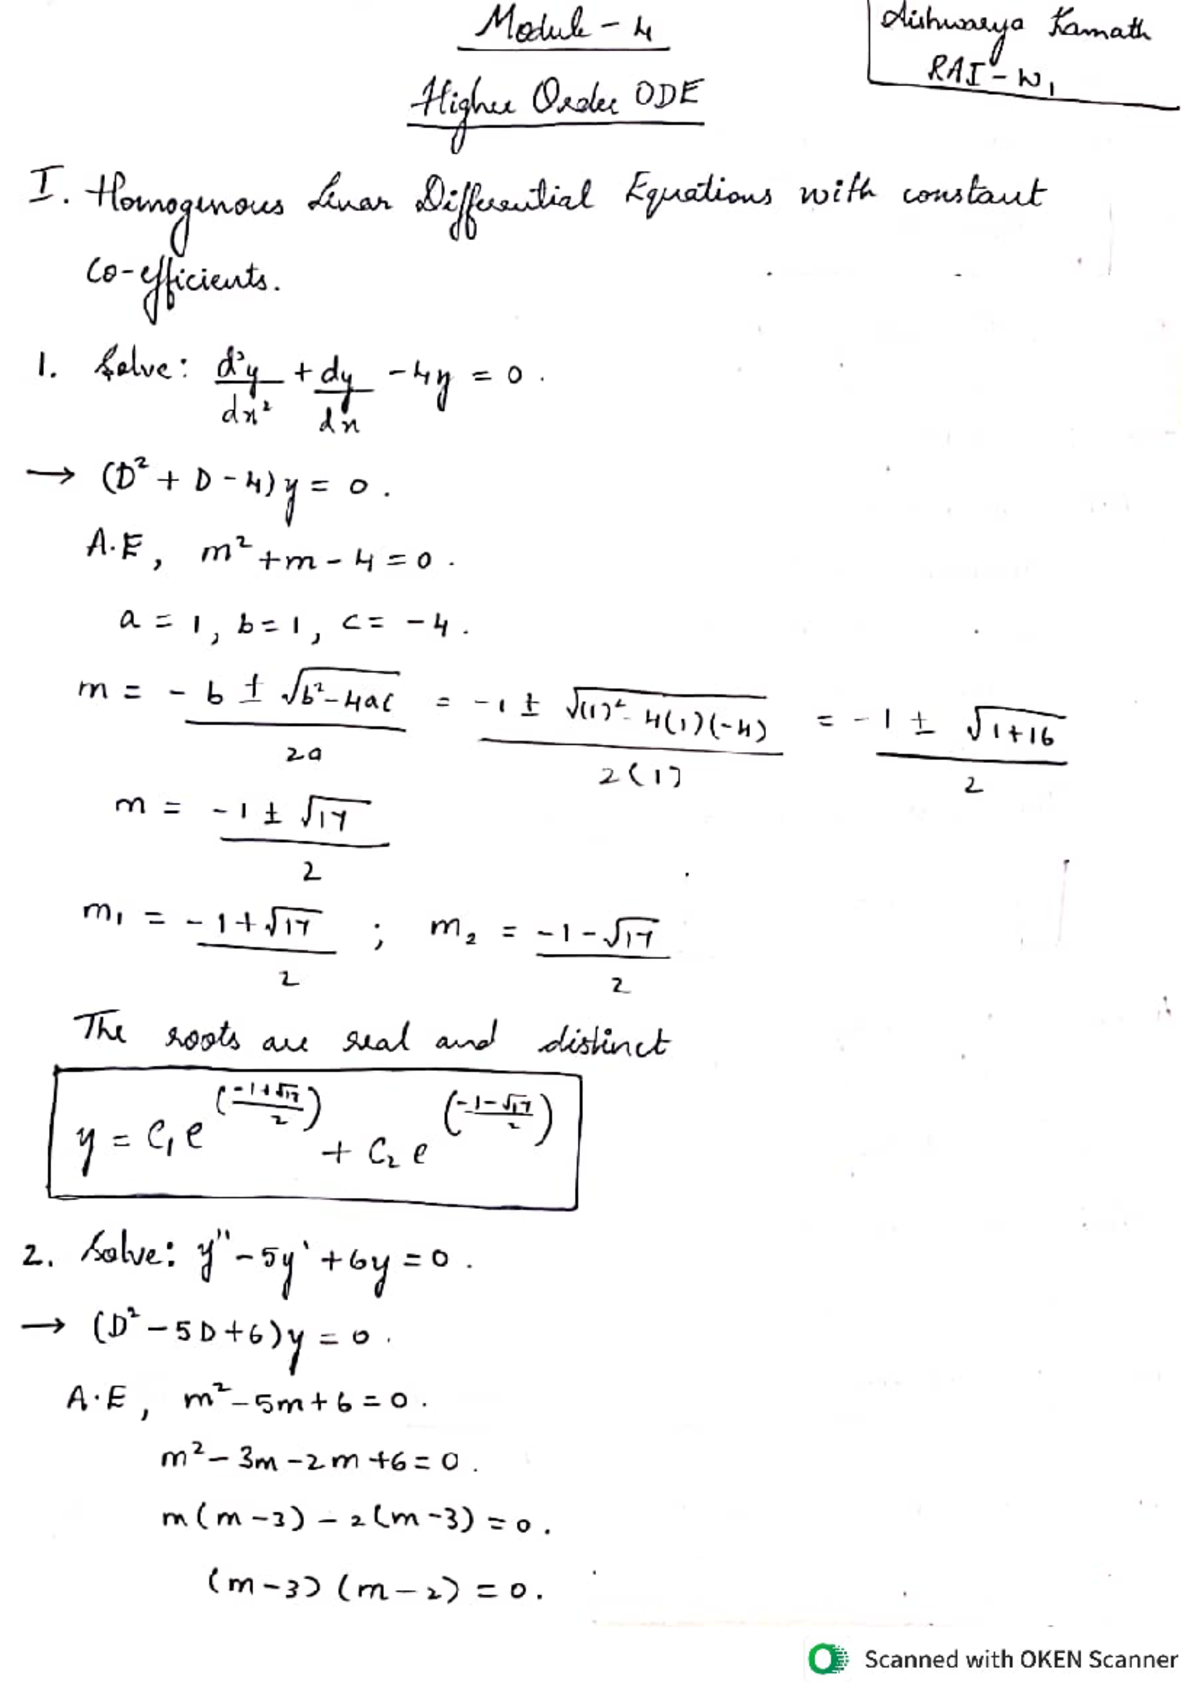 Module - 4
Aishwarya Kamath
RAI - W1
Higher Order ODE
I. Homogenous Linear Differential Equations with constant
co-efficients.
1. Solve: d²y/dx² + dy/dx - 4y = 0.
→ (D² + D - 4)y = 0.
A.E, m² + m - 4 = 0.
a = 1, b = 1, c = -4.
m = -b ± √(b² - 4ac) / 2a = -1 ± √((1)² - 4(1)(-4)) / 2(1) = -1 ± √(1+16) / 2
m = -1 ± √17 / 2
m₁ = -1 + √17 / 2 ; m₂ = -1 - √17 / 2
The roots are real and distinct
y = C₁ e^((-1+√17)/2) + C₂ e^((-1-√17)/2)
2. Solve: y'' - 5y' + 6y = 0.
→ (D² - 5D + 6)y = 0.
A.E, m² - 5m + 6 = 0.
m² - 3m - 2m + 6 = 0.
m(m - 3) - 2(m - 3) = 0.
(m - 3) (m - 2) = 0.
Scanned with OKEN Scanner